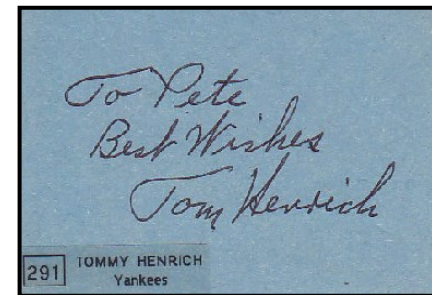 To Pete
Best Wishes
Tom Henrich
291 TOMMY HENRICH
Yankees